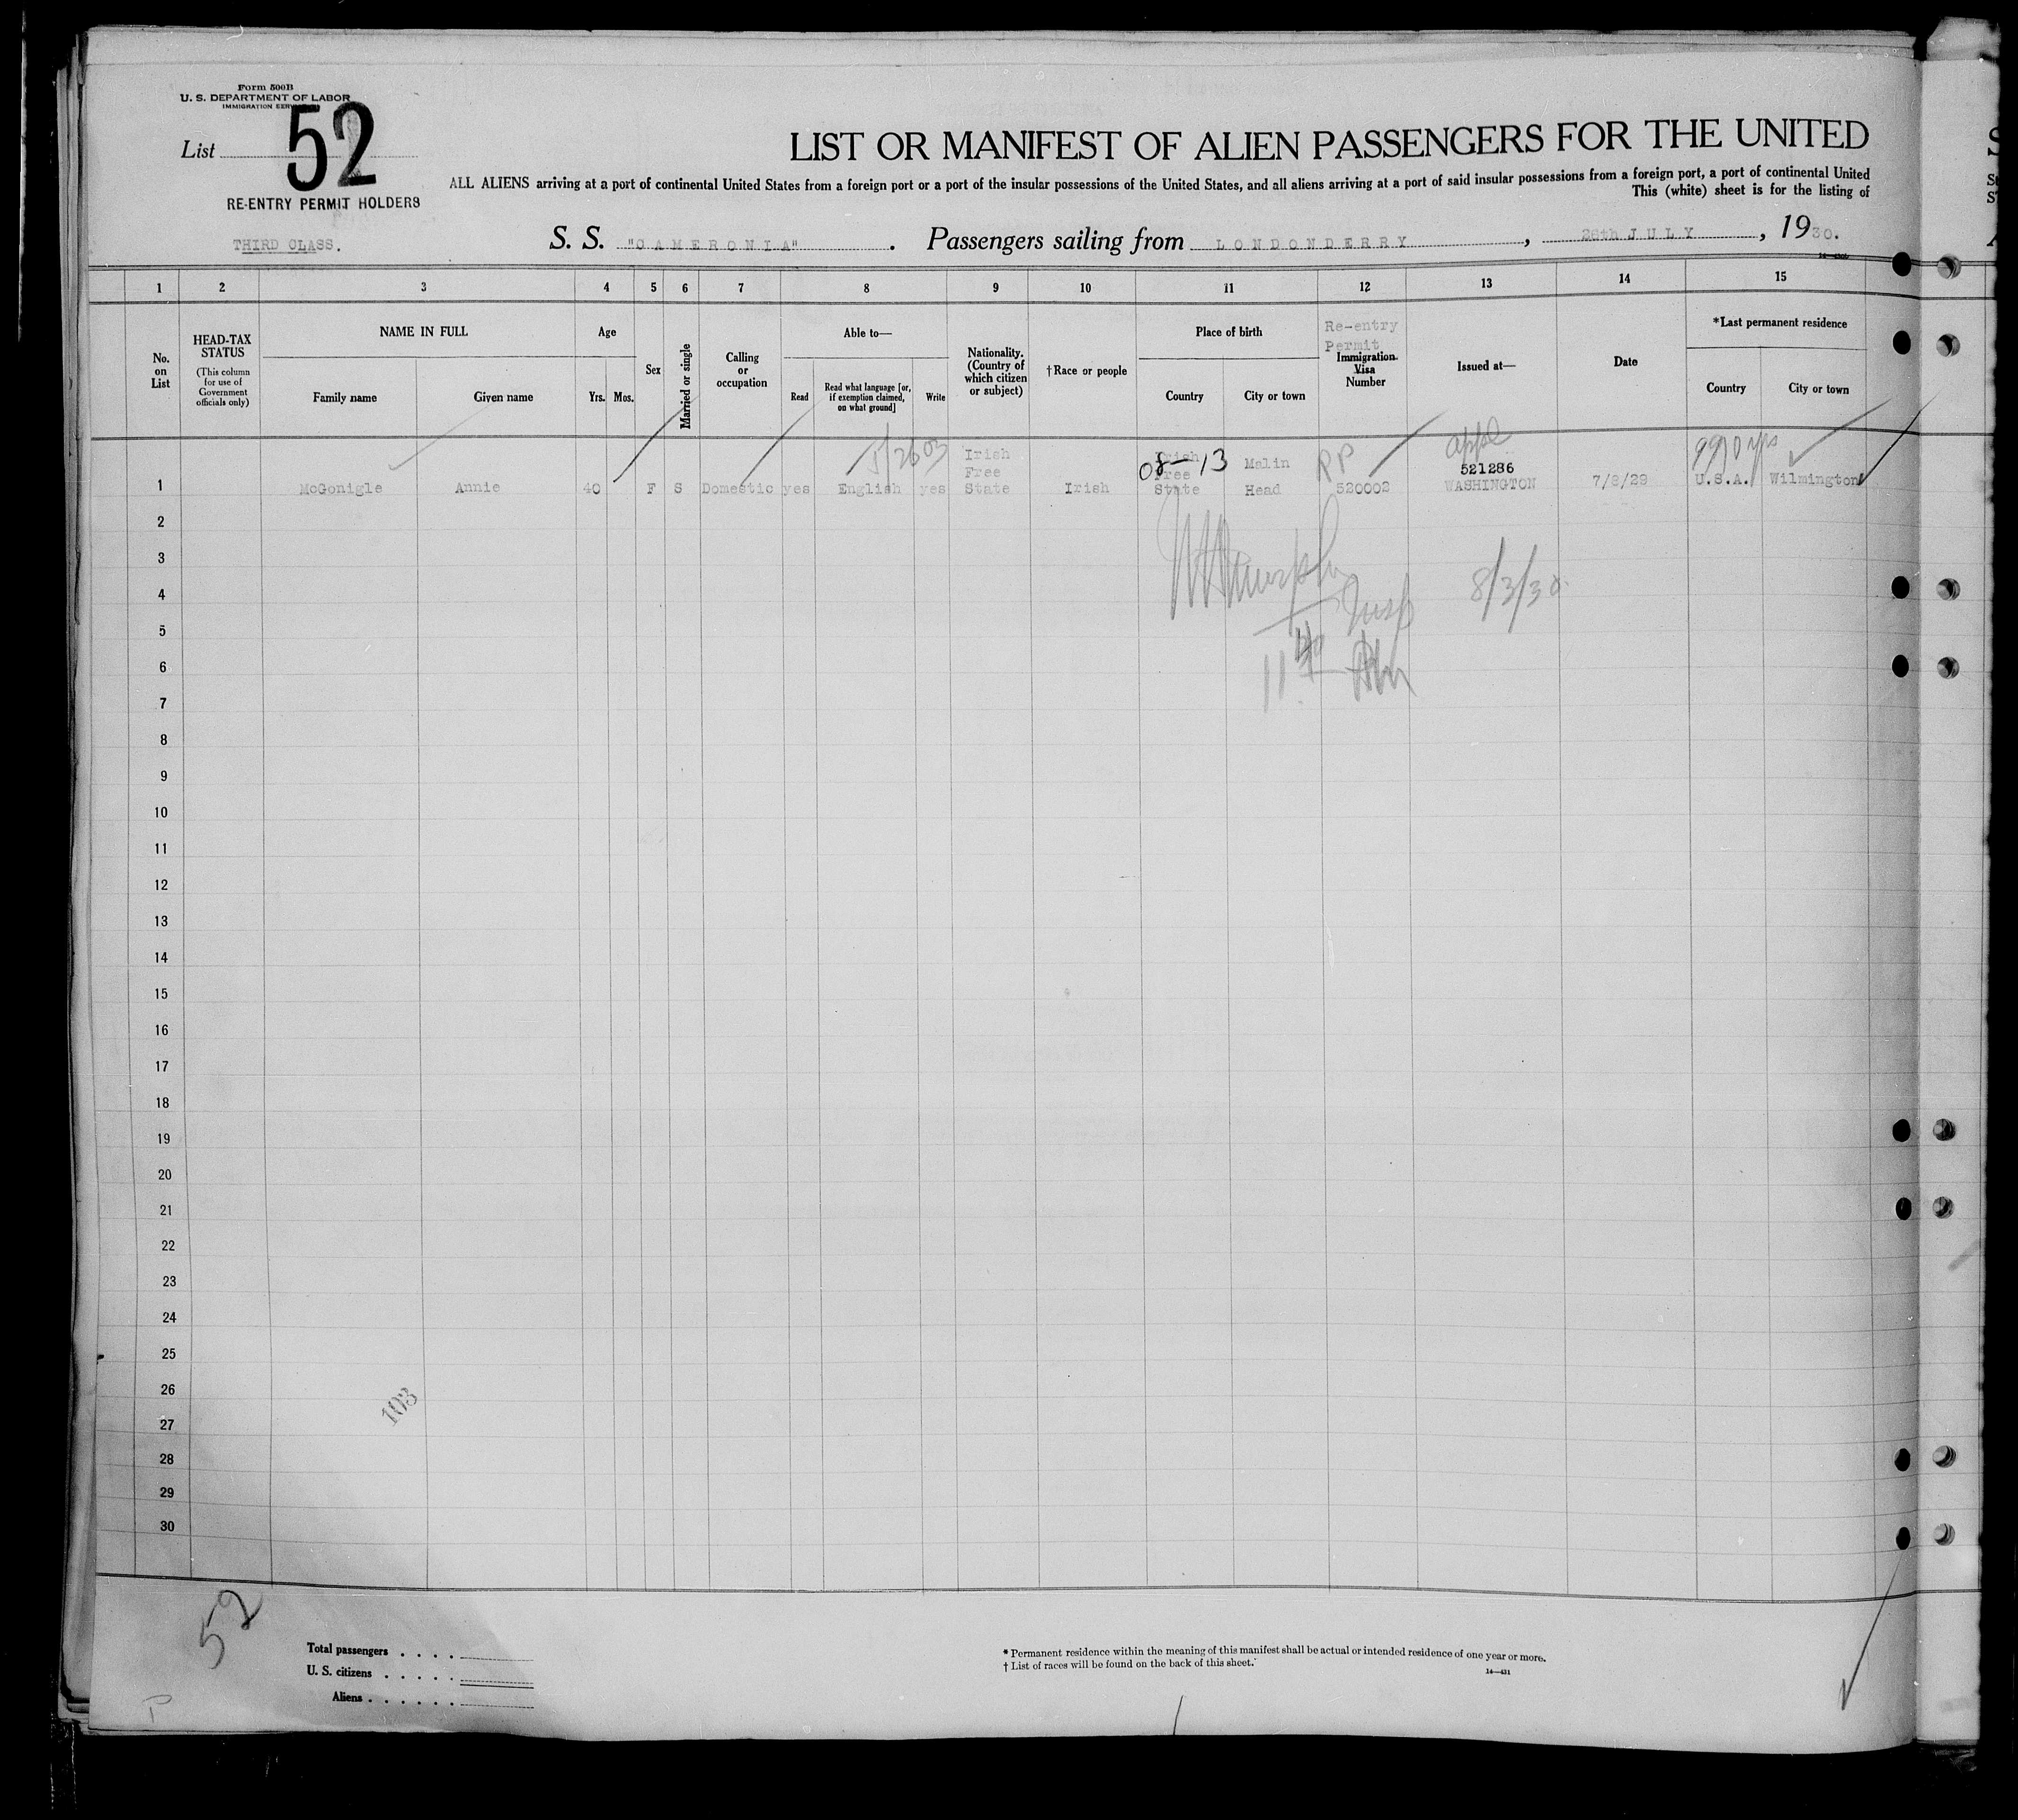 Form 500B
U. S. DEPARTMENT OF LABOR
IMMIGRATION
List 52
RE-ENTRY PERMIT HOLDERS
THIRD CLASS.
LIST OR MANIFEST OF ALIEN PASSENGERS FOR THE UNITED
ALL ALIENS arriving at a port of continental United States from a foreign port or a port of the insular possessions of the United States, and all aliens arriving at a port of said insular possessions from a foreign port, a port of continental United
This (white) sheet is for the listing of
S. S. "CAMERONIA" . Passengers sailing from LONDONDERRY, 26th JULY, 1930.
1 2 3 4 5 6 7 8 9 10 11 12 13 14 15
No. on List
HEAD-TAX STATUS
(This column for use of Government officials only)
NAME IN FULL
Family name
Given name
Age
Yrs. Mos.
Sex
Married or single
Calling or occupation
Able to—
Read
Read what language [or, if exemption claimed, on what ground]
Write
Nationality. (Country of which citizen or subject)
†Race or people
Place of birth
Country
City or town
Re-entry Permit
Immigration Visa Number
Issued at—
Date
*Last permanent residence
Country
City or town
5/2603
08-13
RP
appl
521286
1 McGonigle Annie 40 F S Domestic yes English yes Irish Free State Irish Irish Free State Malin Head 520002 WASHINGTON 7/8/29 U.S.A. Wilmington
2
3
8/3/30
4
Insp
5
6
7
8
9
10
11
12
13
14
15
16
17
18
19
20
21
22
23
24
25
26
103
27
28
29
30
52
Total passengers . . . .
U. S. citizens . . . . .
Aliens . . . . . .
* Permanent residence within the meaning of this manifest shall be actual or intended residence of one year or more.
† List of races will be found on the back of this sheet.
14—431
P